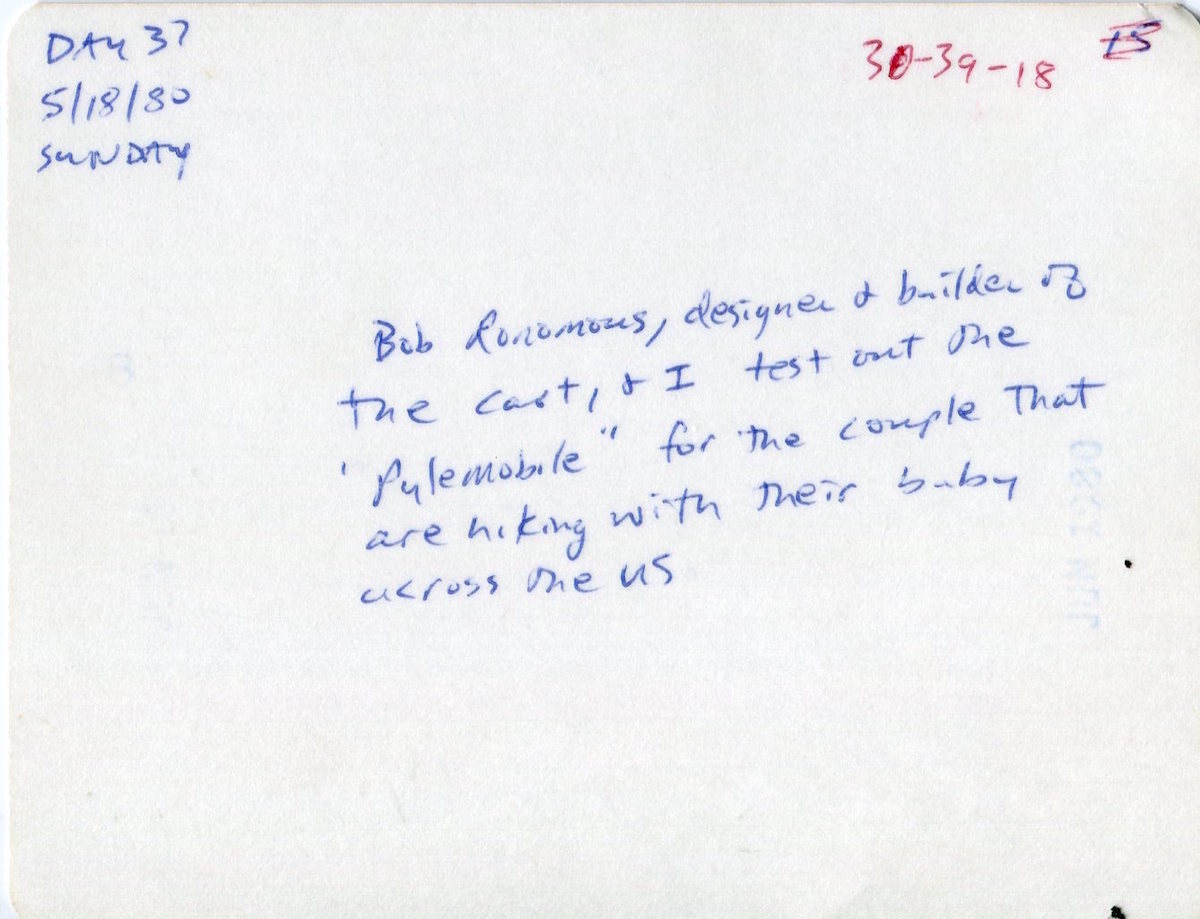 DAY 37
5/18/80
SUNDAY
30-39-18
15
Bob , designer & builder of
the cart, & I test out the
"Pylemobile" for the couple that
are hiking with their baby
across the US